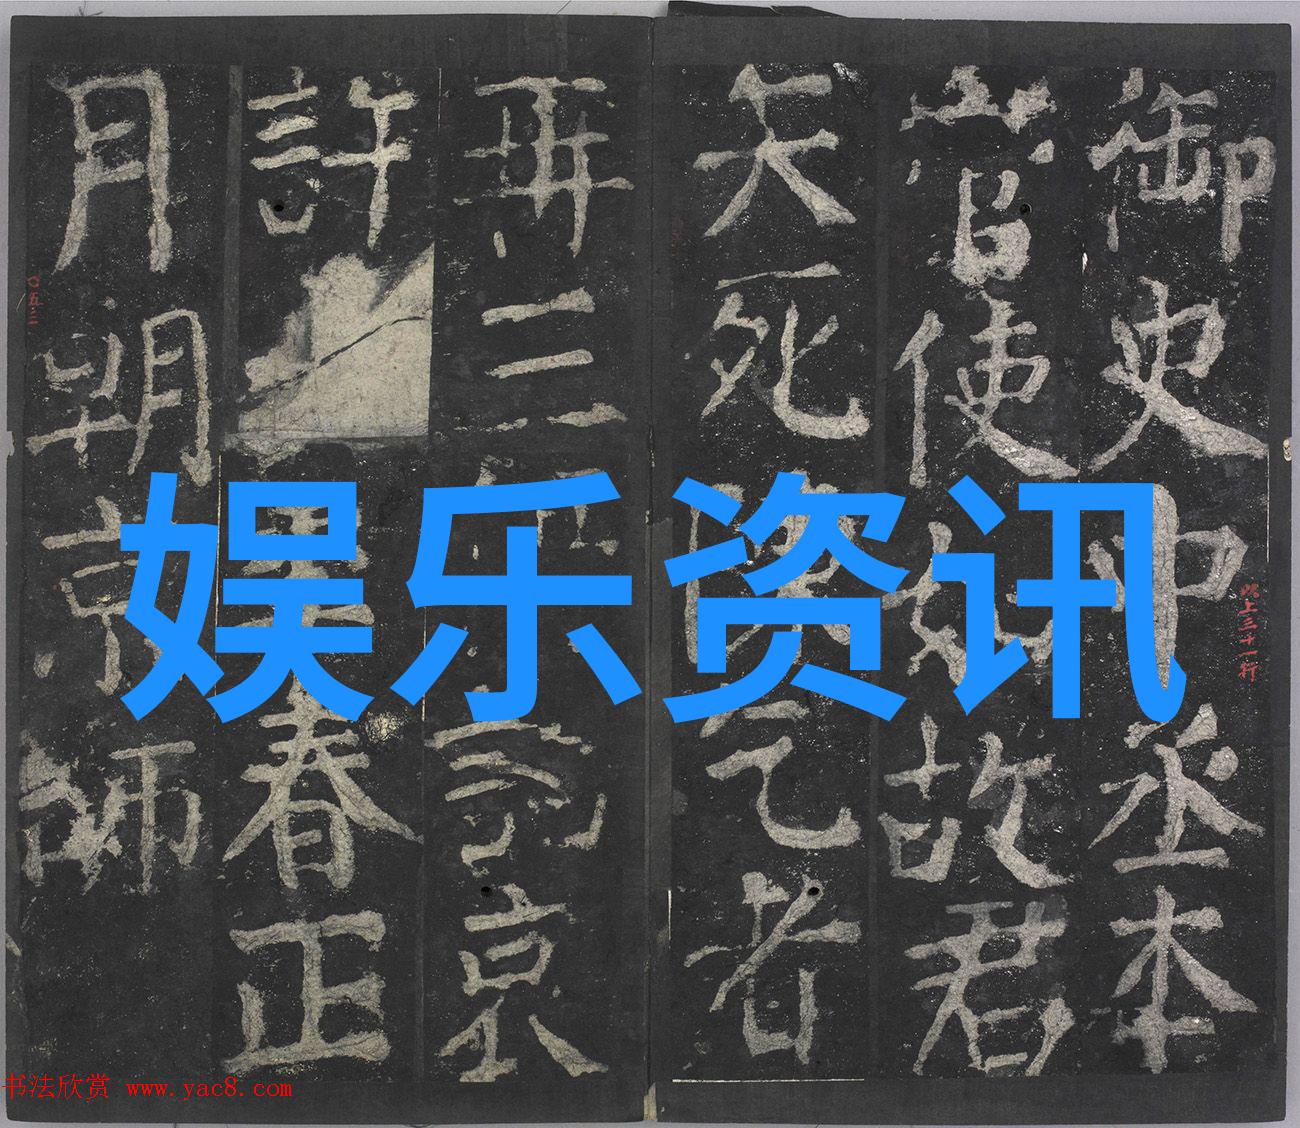 御史中丞本
當使如故君
夭死 乞者
再三 京
許 春正
月朔京師
以上三十一行
〇五三
娱乐资讯
书法欣赏 www.yac8.com